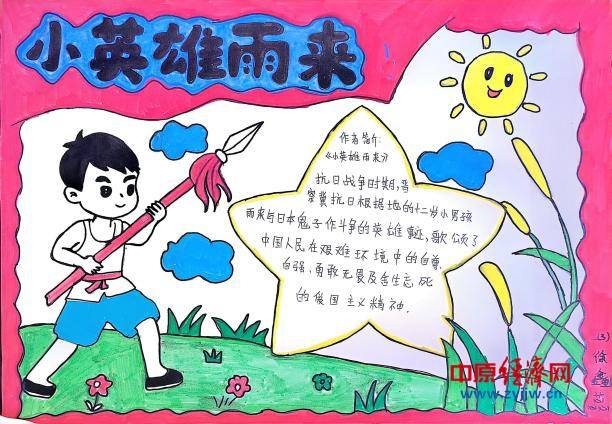 小英雄雨来
作者简介:
《小英雄雨来》
抗日战争时期,晋
察冀抗日根据地的十二岁小男孩
雨来与日本鬼子作斗争的英雄事迹,歌颂了
中国人民在艰难环境中的自尊、
自强、勇敢无畏及舍生忘死
的爱国主义精神.
(3)
徐鑫
中原经济网
www.zyjjw.cn